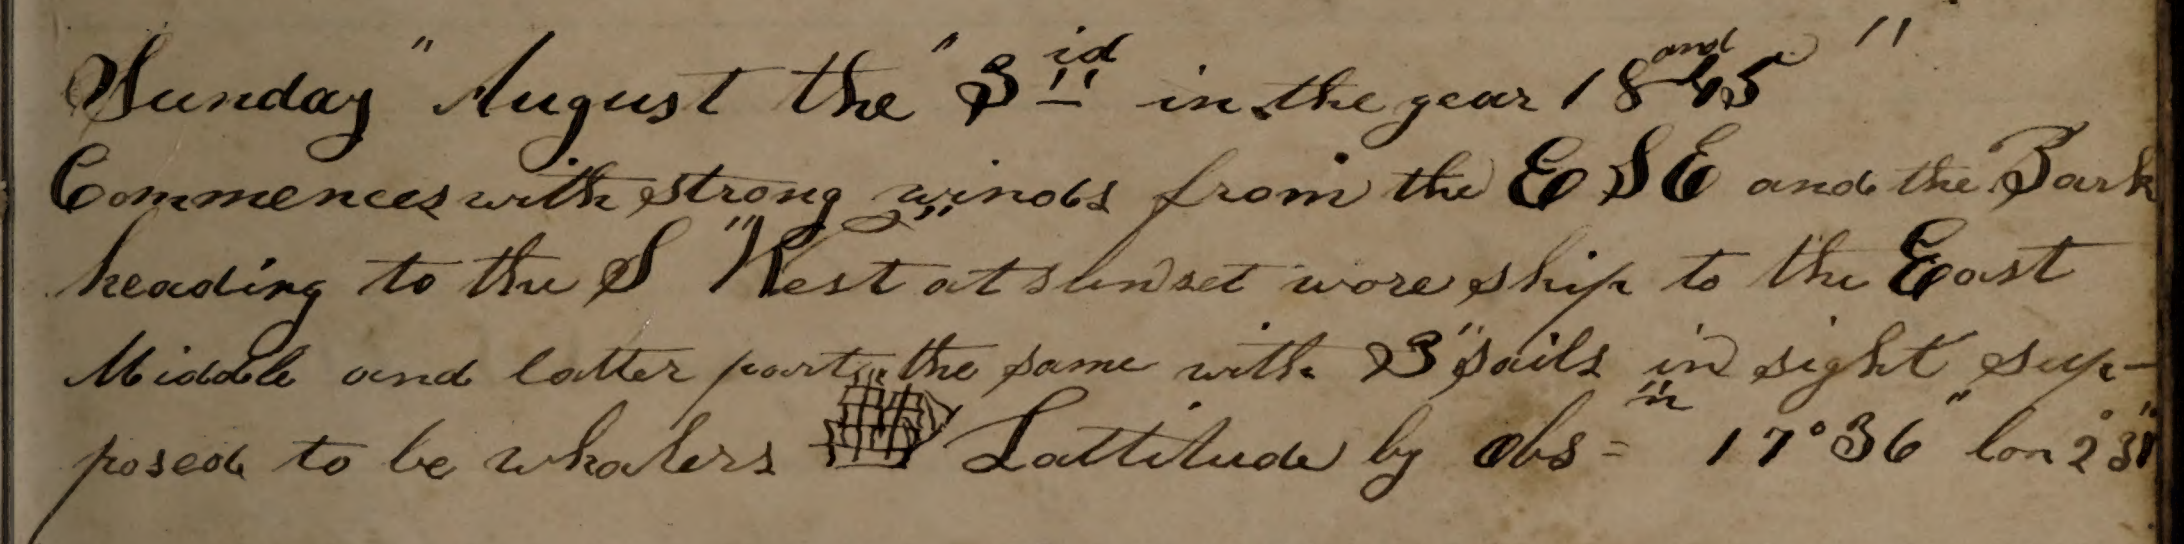 Sunday " August the " 3id in the year 18 and 45 "
Commences with strong winds from the E S E and the Bark
heading to the S " West at sundset wore ship to the East
Middle and latter part " the same with 3 " sails in sight sup-
posed to be whalers Lattitude by obs = n 17° 36 " lon 2° 31"